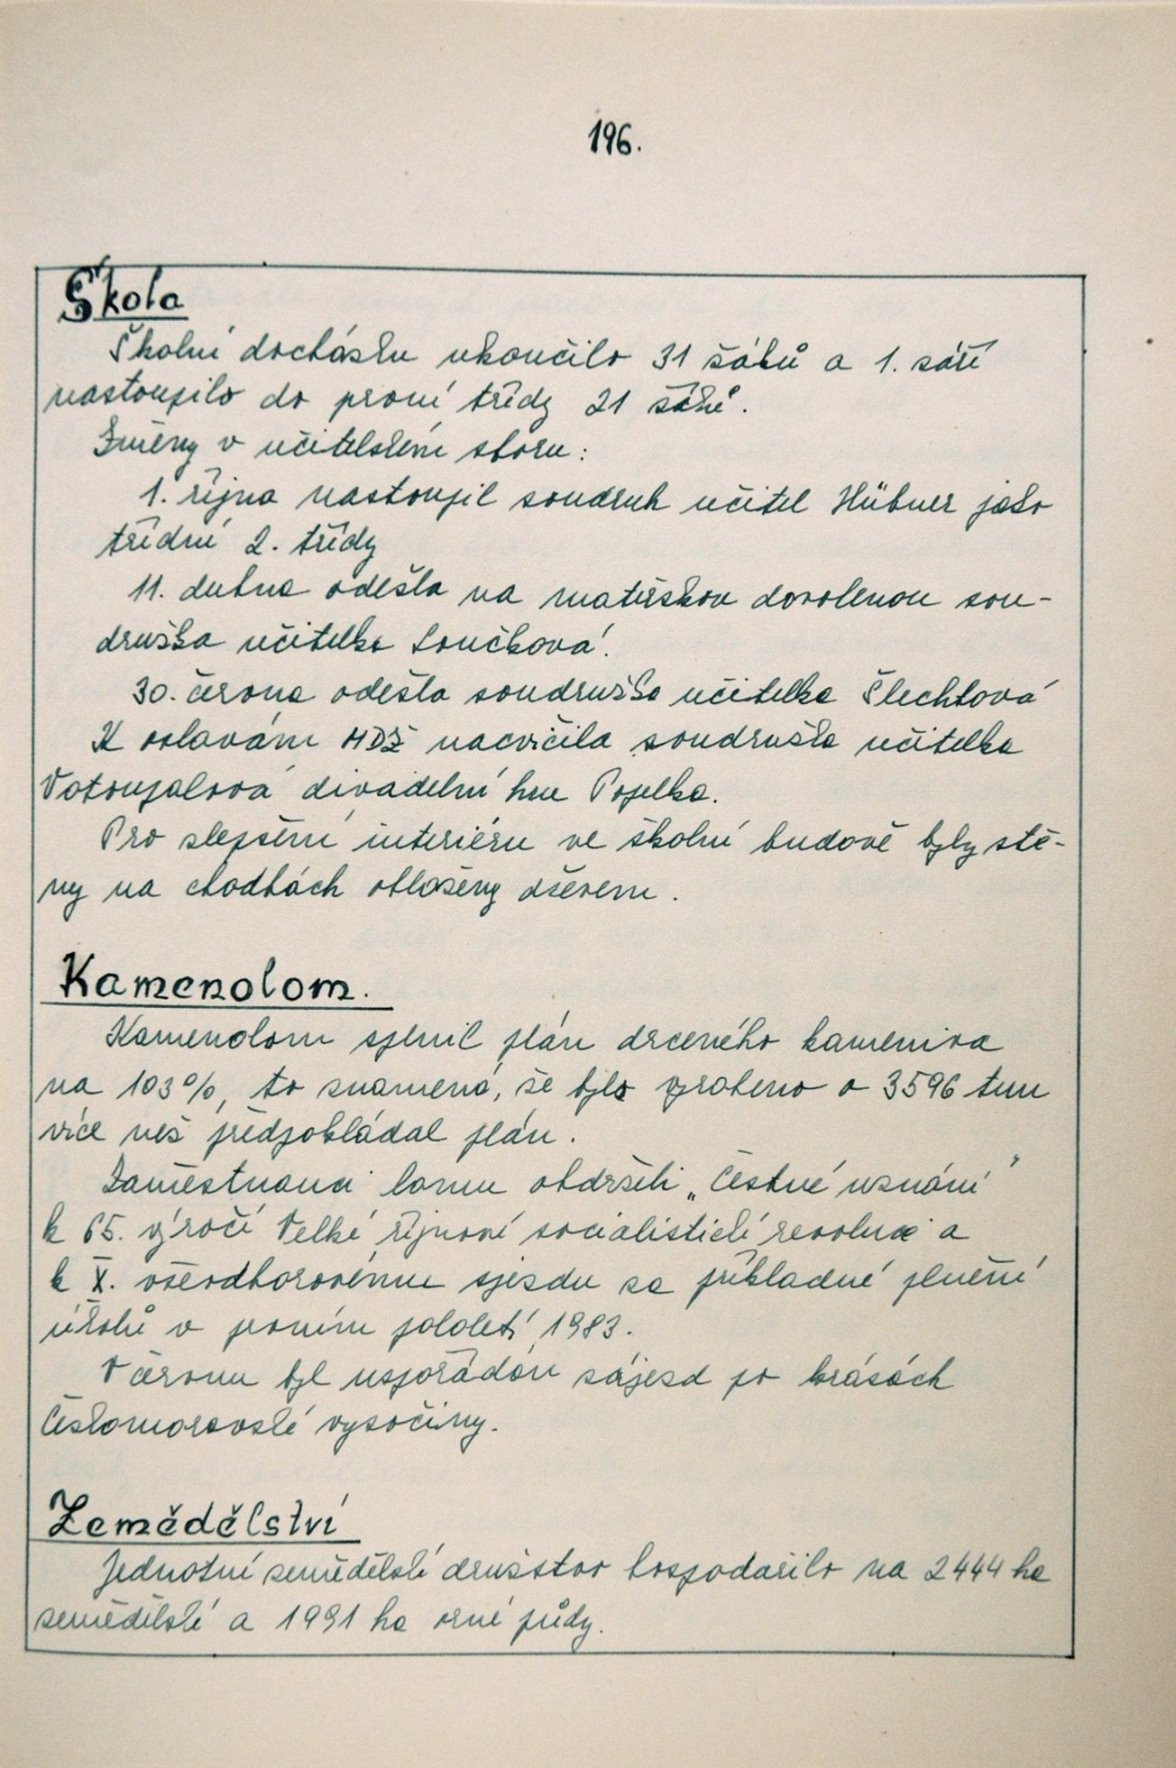 196.
Škola
Školní docházku ukončilo 31 žáků a 1. září
nastoupilo do první třídy 21 žáků.
Změny v učitelském sboru:
1. října nastoupil soudruh učitel Hübner jako
třídní 2. třídy
11. dubna odešla na mateřskou dovolenou sou-
družka učitelka Součková.
30. června odešla soudružka učitelka Šlechtová
K oslavám MDŽ nacvičila soudružka učitelka
Votoupalová divadelní hru Popelka.
Pro zlepšení interiéru ve školní budově byly stě-
ny na chodbách obloženy dřevem.
Kamenolom.
Kamenolom splnil plán drceného kameniva
na 103%, to znamená, že bylo vyrobeno o 3596 tun
více než předpokládal plán.
Zaměstnanci lomu obdrželi „Čestné uznání"
k 65. výročí Velké říjnové socialistické revoluce a
k X. všeodborovému sjezdu za příkladné plnění
úkolů v prvním pololetí 1983.
V červnu byl uspořádán zájezd po krásách
Českomoravské vysočiny.
Zemědělství
Jednotné zemědělské družstvo hospodařilo na 2444 ha
zemědělské a 1991 ha orné půdy.